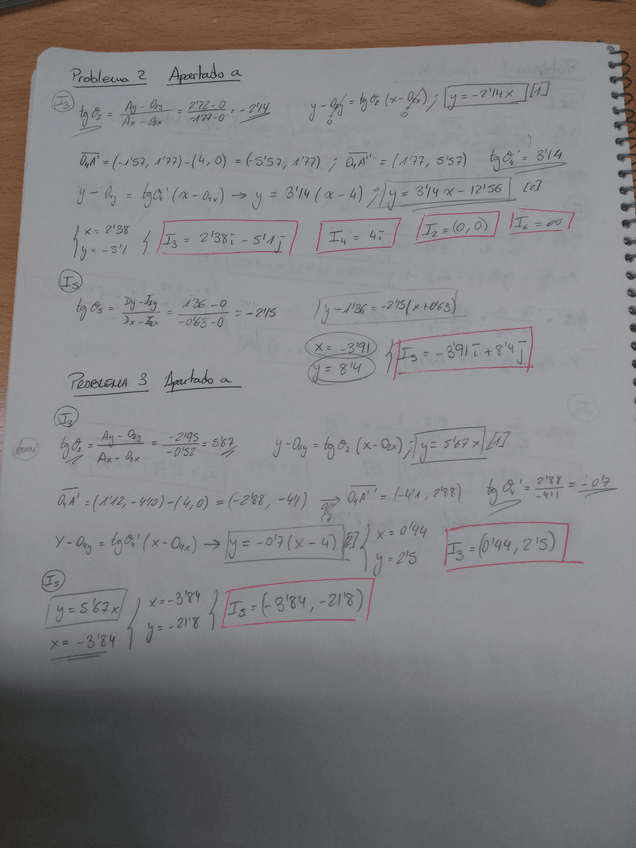 Problema 2 Apartado a
I₃
tgθ₂ = (Ay - O₂y)/(Ax - O₂x) = (2'72 - 0)/(-1'77 - 0) = -2'14 y - O₂y = tgθ₂ (x - O₂x) ; y = -2'14x [1]
0 0
O₄A' = (-1'57, 1'77) - (4,0) = (-5'57, 1'77) ; O₄A'' = (1'77, 5'57) tgθ₄' = 3'14
y - O₄y = tgθ₄' (x - O₄x) → y = 3'14 (x - 4) ; y = 3'14x - 12'56 [2]
{ x = 2'38
y = -5'1 } I₃ = 2'38i - 5'1j I₄ = 4i I₂ = (0,0) I₆ = ∞
I₅
tgθ₅ = (Dy - I₂y)/(Dx - I₂x) = (1'36 - 0)/(-0'63 - 0) = -2'15 y - 1'36 = -2'15 (x + 0'63)
x = -3'91
y = 8'4 } I₅ = -3'91i + 8'4j
PROBLEMA 3 Apartado a
I₃
tgθ₂ = (Ay - O₂y)/(Ax - O₂x) = (-2'95)/(-0'52) = 5'67 y - O₂y = tgθ₂ (x - O₂x) ; y = 5'67x [1]
O₄A' = (1'12, -4'10) - (4,0) = (-2'88, -4'1) ⇒ O₄A'' = (-4'1, 2'88) tgθ₄' = 2'88/-4'1 = -0'7
y - O₄y = tgθ₄' (x - O₄x) → y = -0'7 (x - 4) [2] { x = 0'44
y = 2'5 I₃ = (0'44, 2'5)
I₅
y = 5'67x { x = -3'84
x = -3'84 y = -21'8 } I₅ = (-3'84, -21'8)